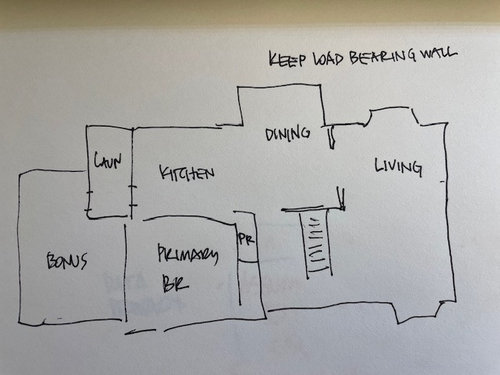 KEEP LOAD BEARING WALL
DINING
LAUN
KITCHEN
LIVING
PR
BONUS
PRIMARY
BR